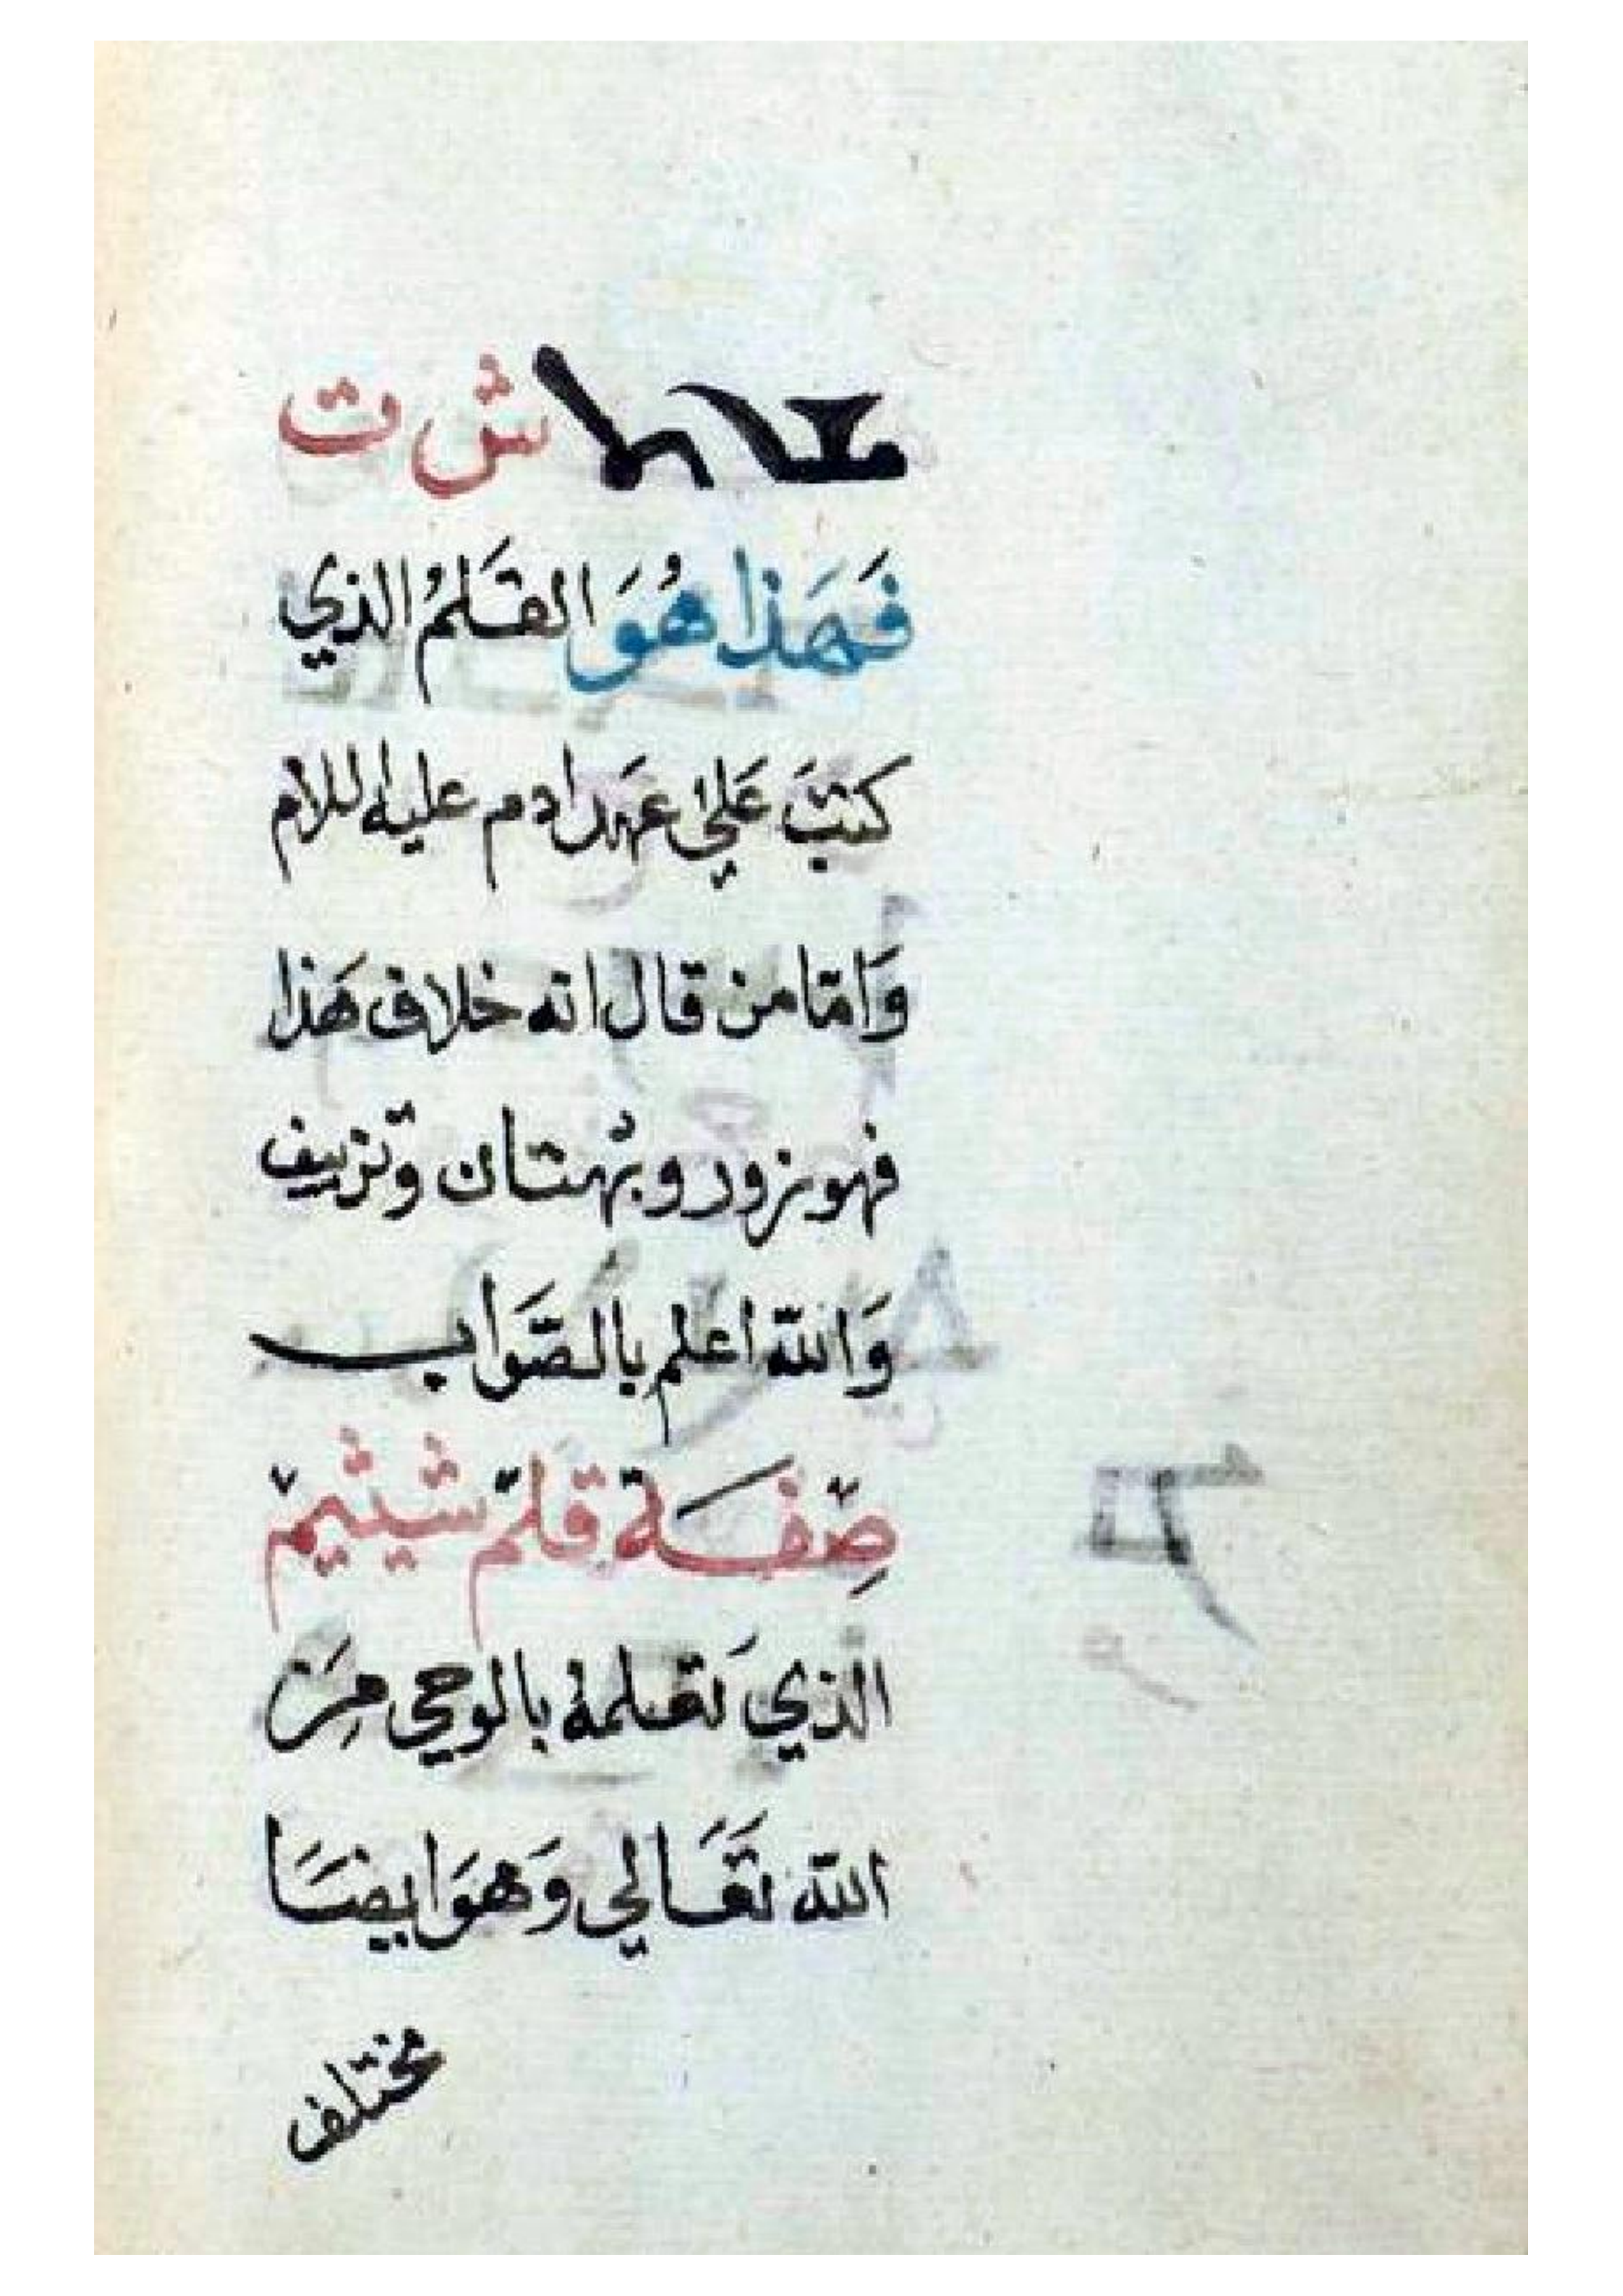 ش ت
فَهَذا هُوَ القَلَمُ الذي
كتبَ عَلي عَهد ادم عليه للام
وَامّا من قال انه خلاف هَذا
فهو زور وبُهتان وتزييف
وَالله اعلم بالصَّوَاب
صِفَة قلم شيثيم
الذي تعَلمهُ بالوحي مِنَ
الله تعَالي وَهوَ ايضَا
مختلف